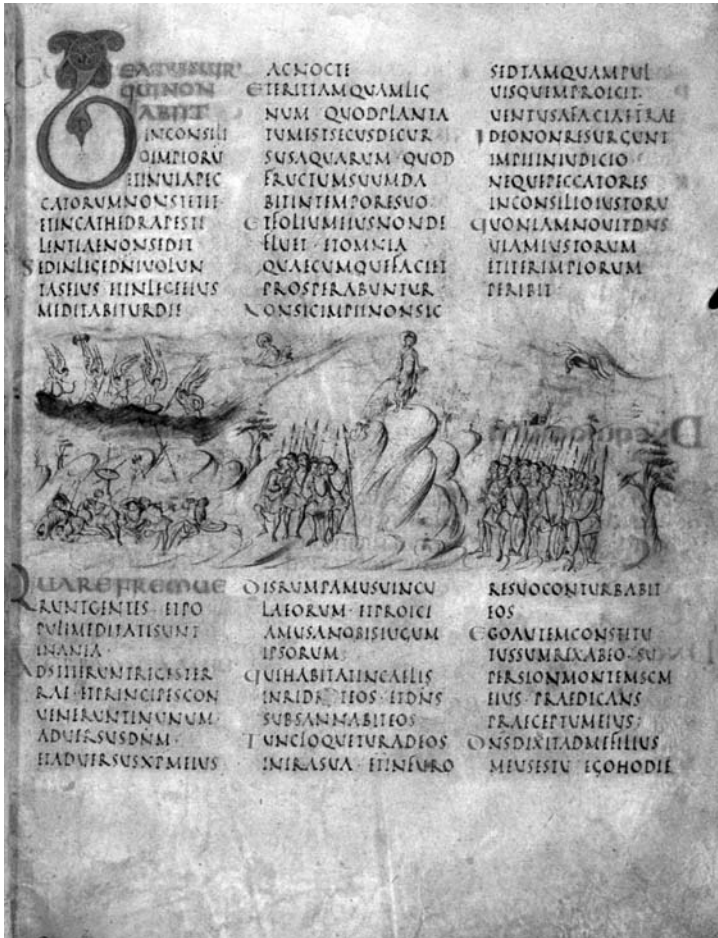 BEATUSUIR
QUINON
ABIIT
INCONSILI
OIMPIORU
ETINUIAPEC
CATORUMNONSTETIT·
ETINCATHEDRAPESTI
LENTIAENONSEDIT
SEDINLEGEDNIUOLUN
TASEIUS ETINLEGEEIUS
MEDITABITURDIE
ACNOCTE
ETERITTAMQUAMLIG
NUM QUODPLANTA
TUMESTSECUSDECUR
SUSAQUARUM QUOD
FRUCTUMSUUMDA
BITINTEMPORESUO
ETFOLIUMEIUSNONDE
FLUET · ETOMNIA
QUAECUMQUEFACIET
PROSPERABUNTUR
NONSICIMPIINONSIC
SEDTAMQUAMPUL
UISQUEMPROICIT
UENTUSAFACIAETERAE
IDEONONRESURGUNT
IMPIIINIUDICIO
NEQUEPECCATORES
INCONSILIOIUSTORU
QUONIAMNOUITDNS
UIAMIUSTORUM
ETITERIMPIORUM
PERIBIT
QUAREFREMUE
RUNTGENTES ETPO
PULIMEDITATISUNT
INANIA·
ADSTITERUNTREGESTER
RAE· ETPRINCIPESCON
UENERUNTINUNUM·
ADUERSUSDNM·
ETADUERSUSXPMEIUS
DISRUMPAMUSUINCU
LAEORUM· ETPROICI
AMUSANOBISIUGUM
IPSORUM
QUIHABITATINCAELIS
INRIDETEOS· ETDNS
SUBSANNABITEOS
TUNCLOQUETURADEOS
INIRASUA· ETINFURO
RESUOCONTURBABIT
EOS
EGOAUTEMCONSTITU
TUSSUMREXABEO·SU
PERSIONMONTEMSCM
EIUS PRAEDICANS
PRAECEPTUMEIUS;
DNSDIXITADMEFILIUS
MEUSESTU EGOHODIE